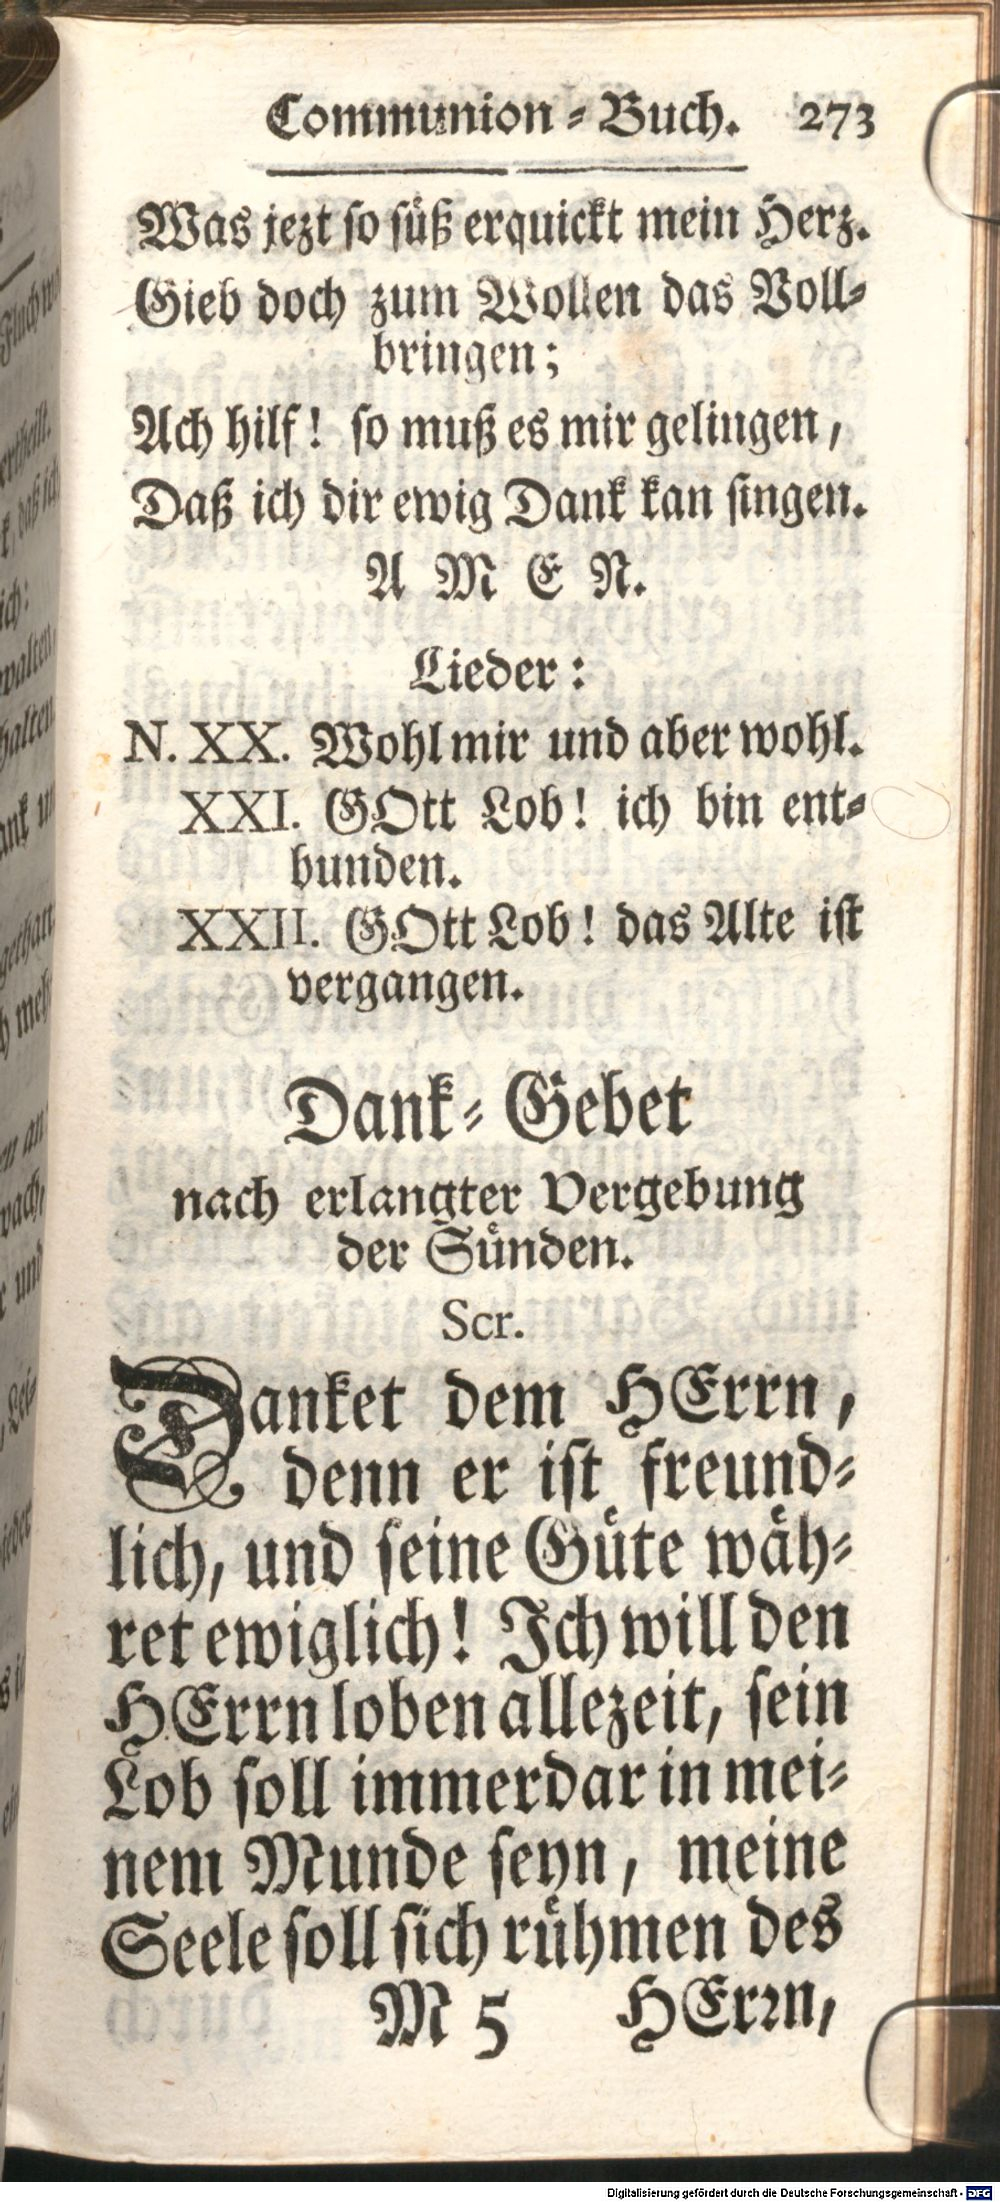 Communion-Buch. 273
Was jezt so süß erquickt mein Herz.
Gieb doch zum Wollen das Voll-
bringen;
Ach hilf! so muß es mir gelingen,
Daß ich dir ewig Dank kan singen.
A M E N.
Lieder:
N. XX. Wohl mir und aber wohl.
XXI. GOtt Lob! ich bin ent-
bunden.
XXII. GOtt Lob! das Alte ist
vergangen.
Dank-Gebet
nach erlangter Vergebung
der Sünden.
Scr.
Danket dem HErrn,
denn er ist freund-
lich, und seine Güte wäh-
ret ewiglich! Ich will den
HErrn loben allezeit, sein
Lob soll immerdar in mei-
nem Munde seyn, meine
Seele soll sich rühmen des
M 5 HErrn,
Digitalisierung gefördert durch die Deutsche Forschungsgemeinschaft - DFG